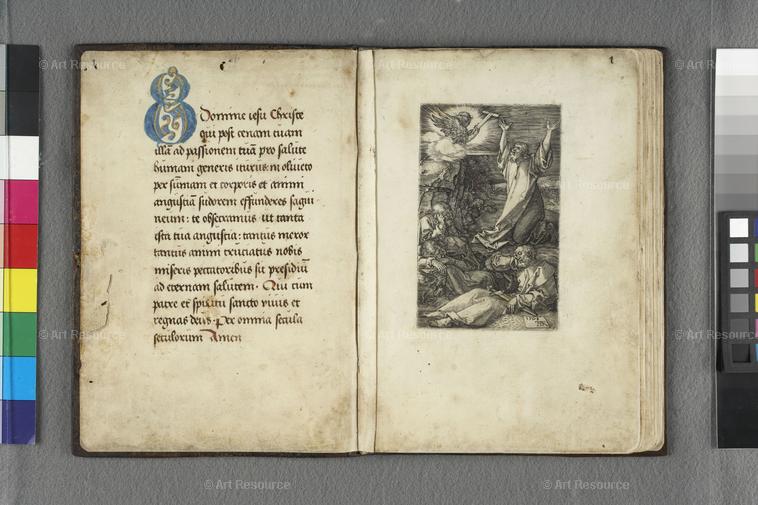 O Domine iesu Christe
qui post cenam tuam
illā ad passionem tuā pro salute
humani generis iturus: in oliueto
per sūmam et corporis et animi
angustiā sudorem effunderes sāgui
neum: te obsecramus ut tanta
ista tua angustia: tantus meror
tantus animi cruciatus nobis
miseris peccatoribus sit presidiū
ad eternam salutem. Qui cum
patre et spiritu sancto viuis et
regnas deus. Per omnia secula
seculorum Amen
1508
AD
© Art Resource
© Art Resource
© Art Resource
© Art Resource
© Art Resource
© Art Resource
© Art Resource
© Art Resource
© Art Resource
© Art Resource
© Art Resource
© Art Resource